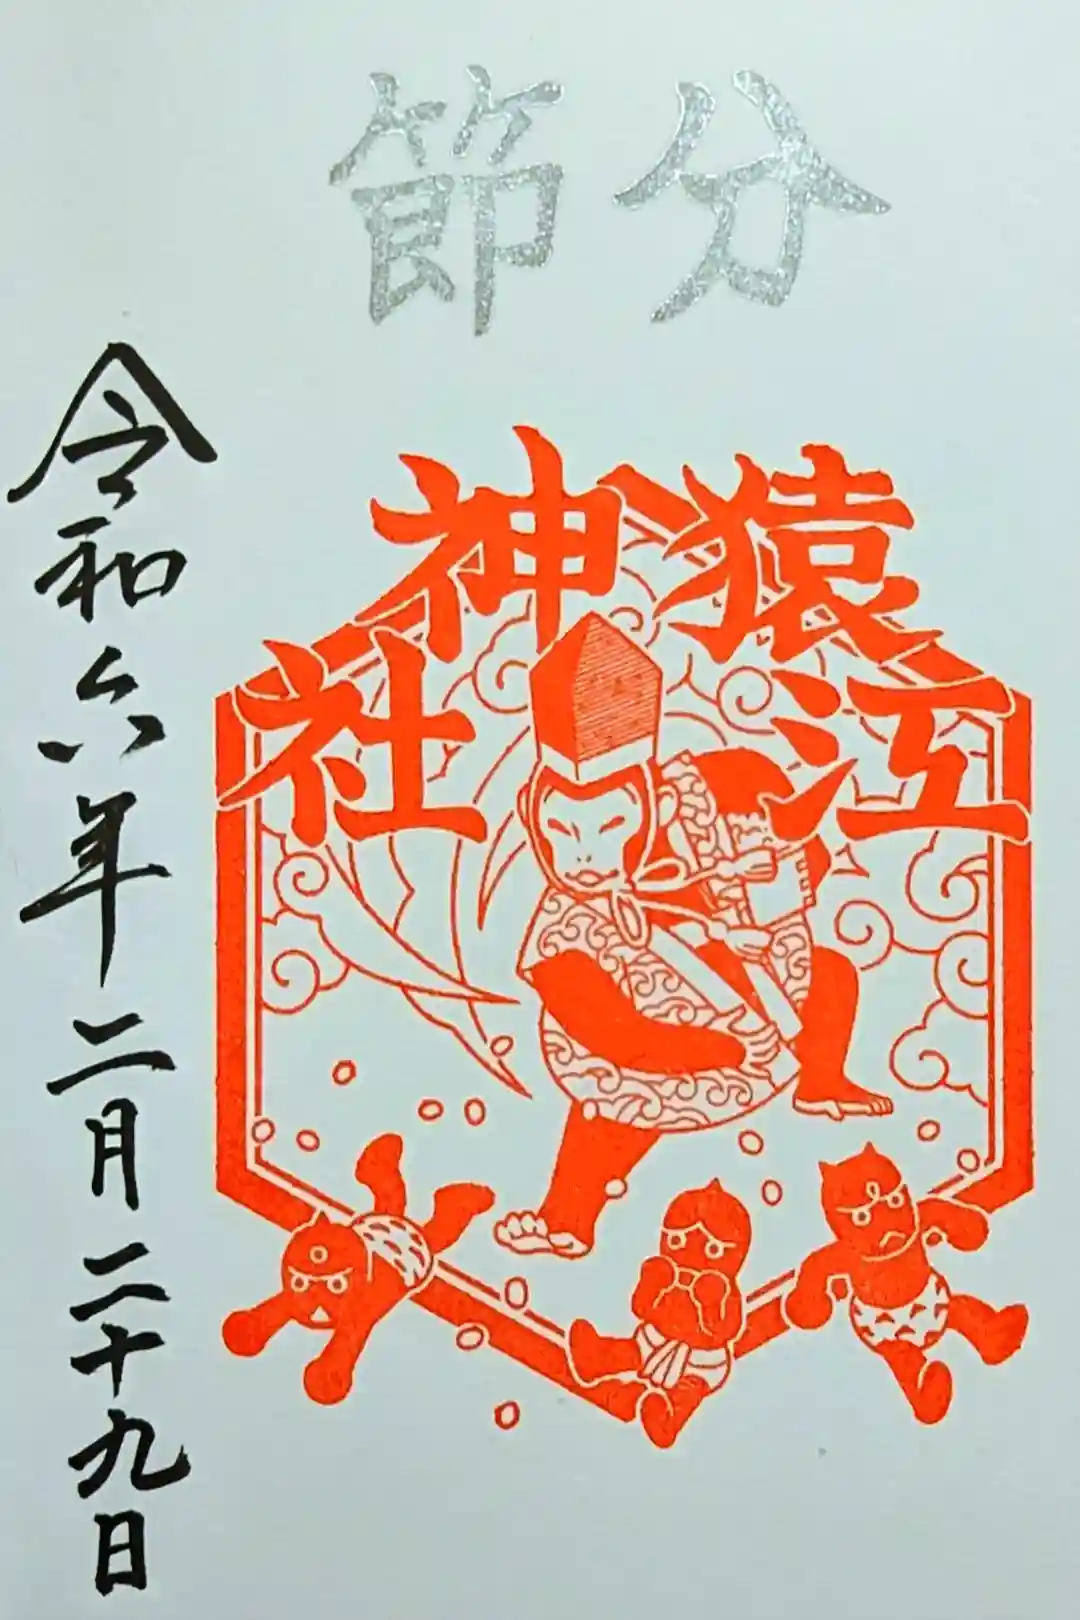 節分
猿江
神社
令和六年二月二十九日